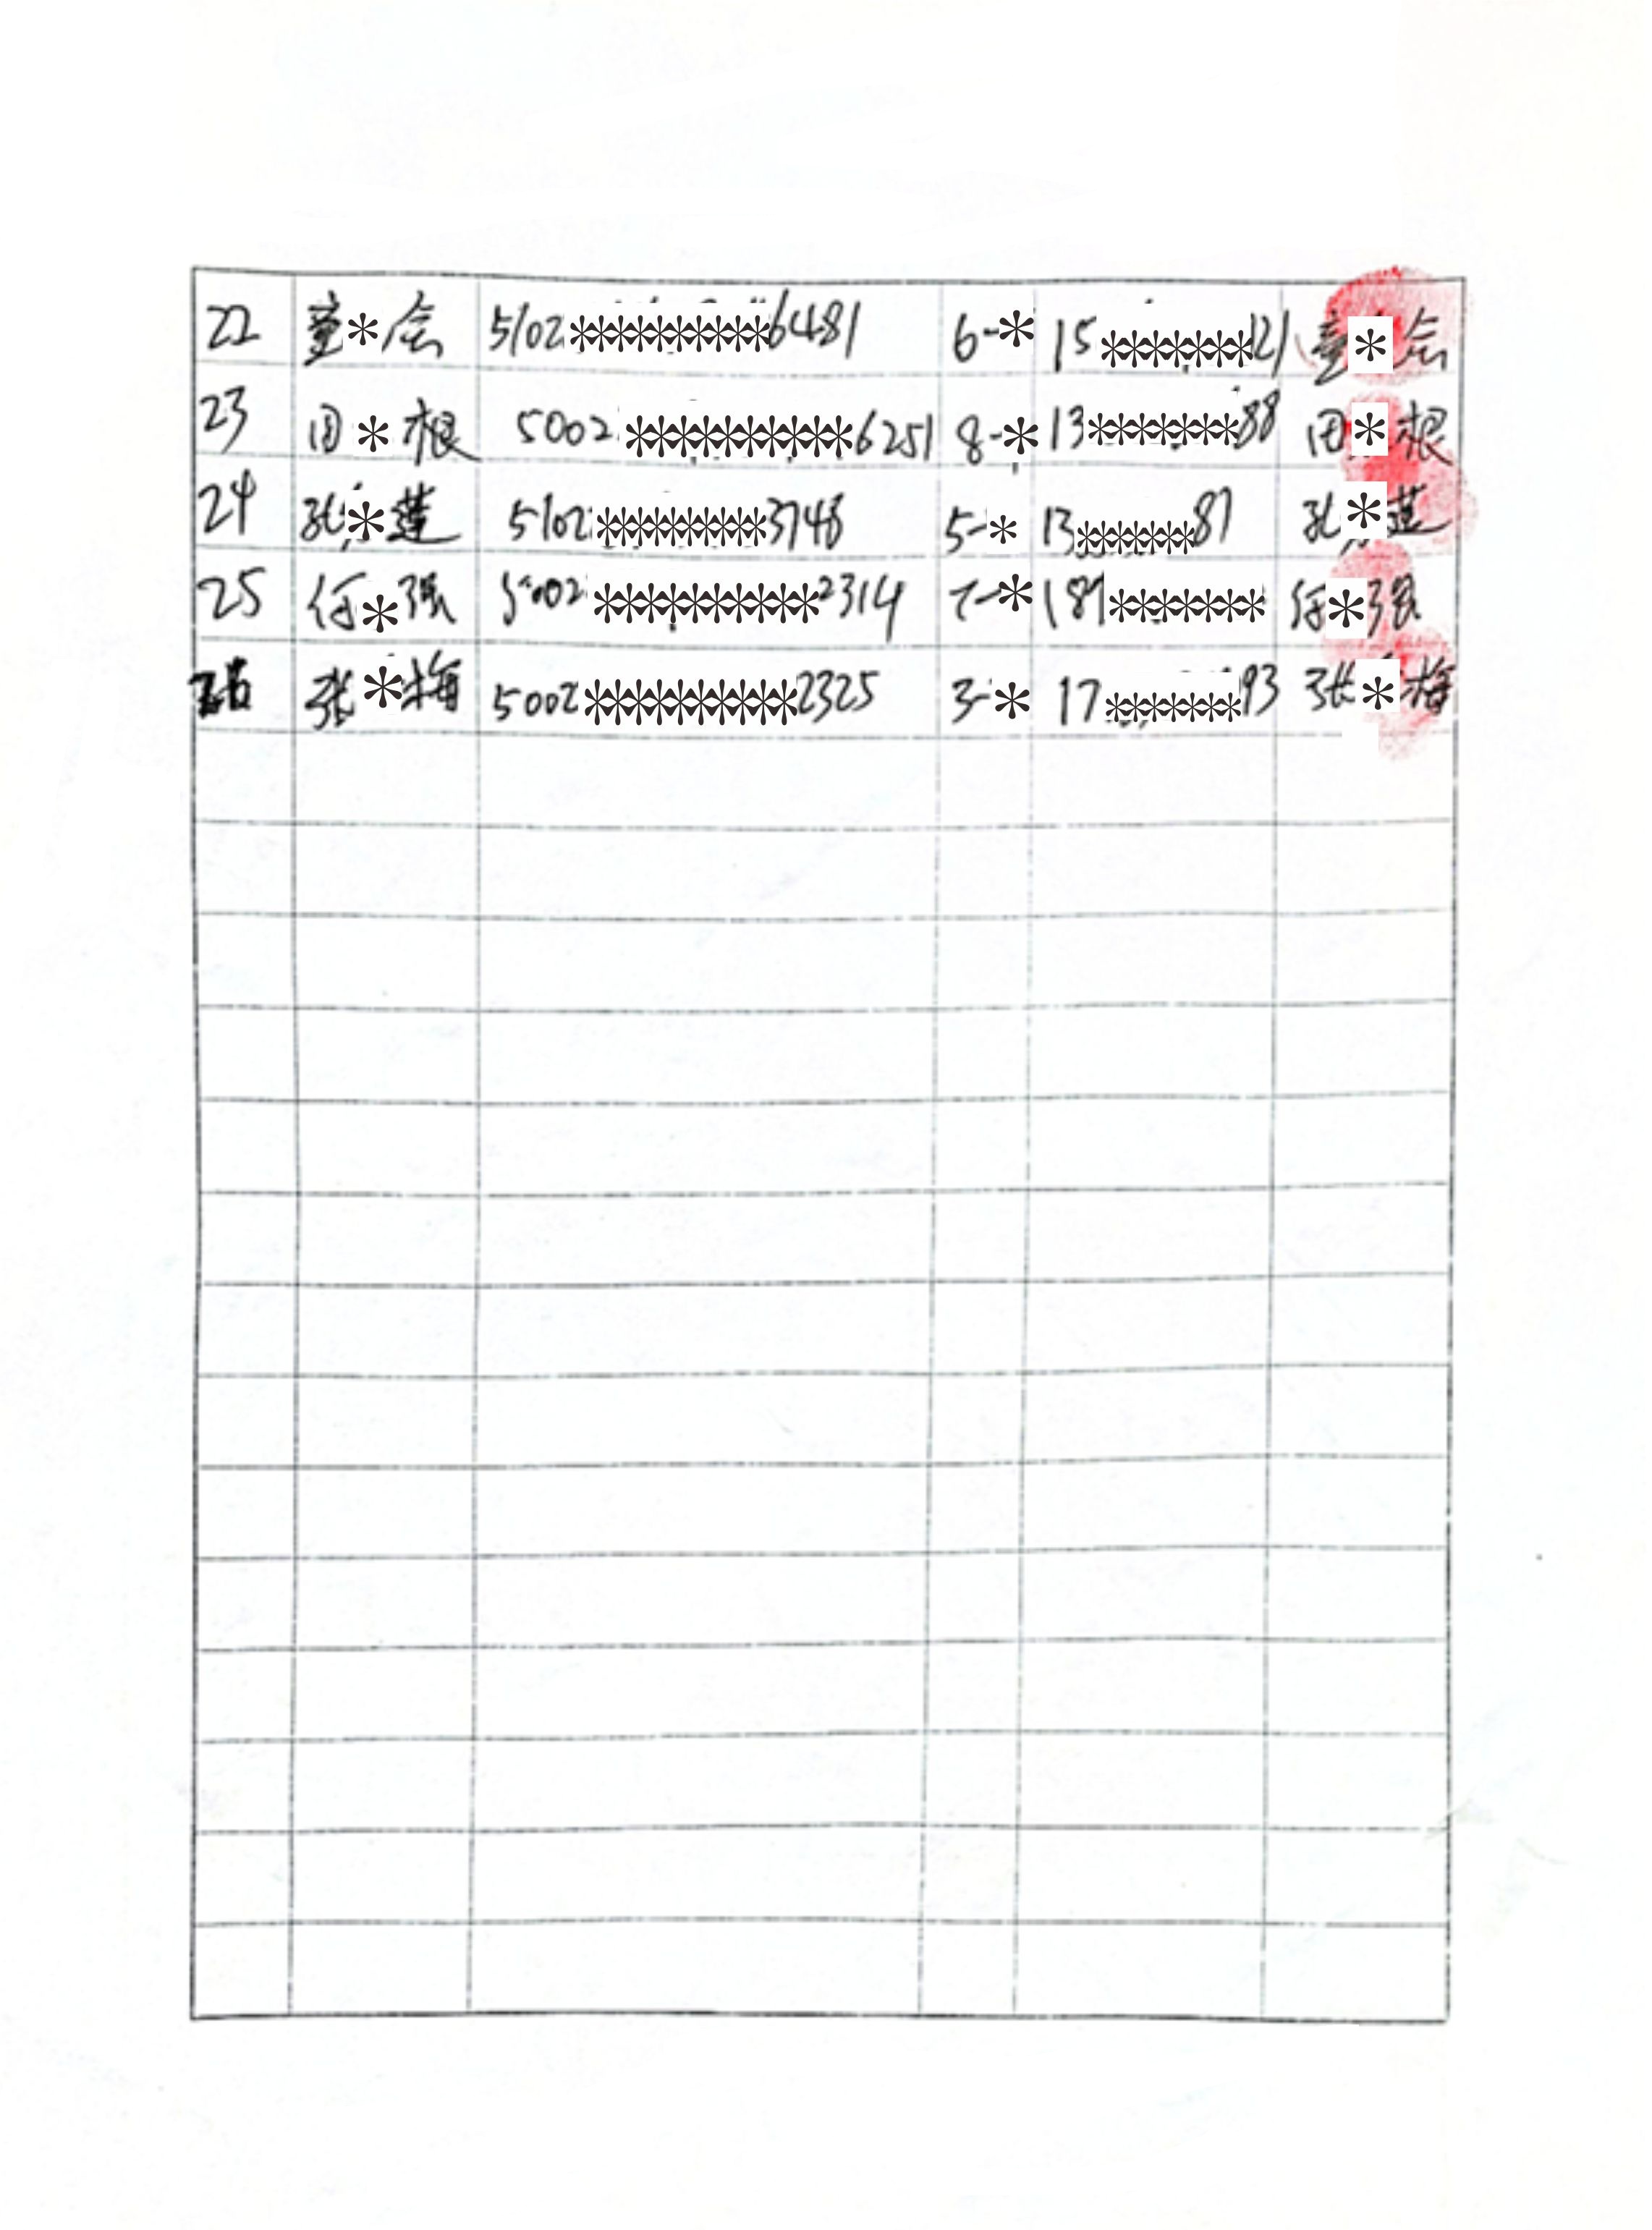 22 童*会 5102**********6481 6-* 15*******121 童*会
23 田*根 5002**********6251 8-* 13*******88 田*根
24 孔*莲 5102*********3748 5-* 13*******87 孔*莲
25 任*强 5002**********2314 7-* 189******* 任*强
26 张*梅 5002**********2325 3-* 17*******93 张*梅